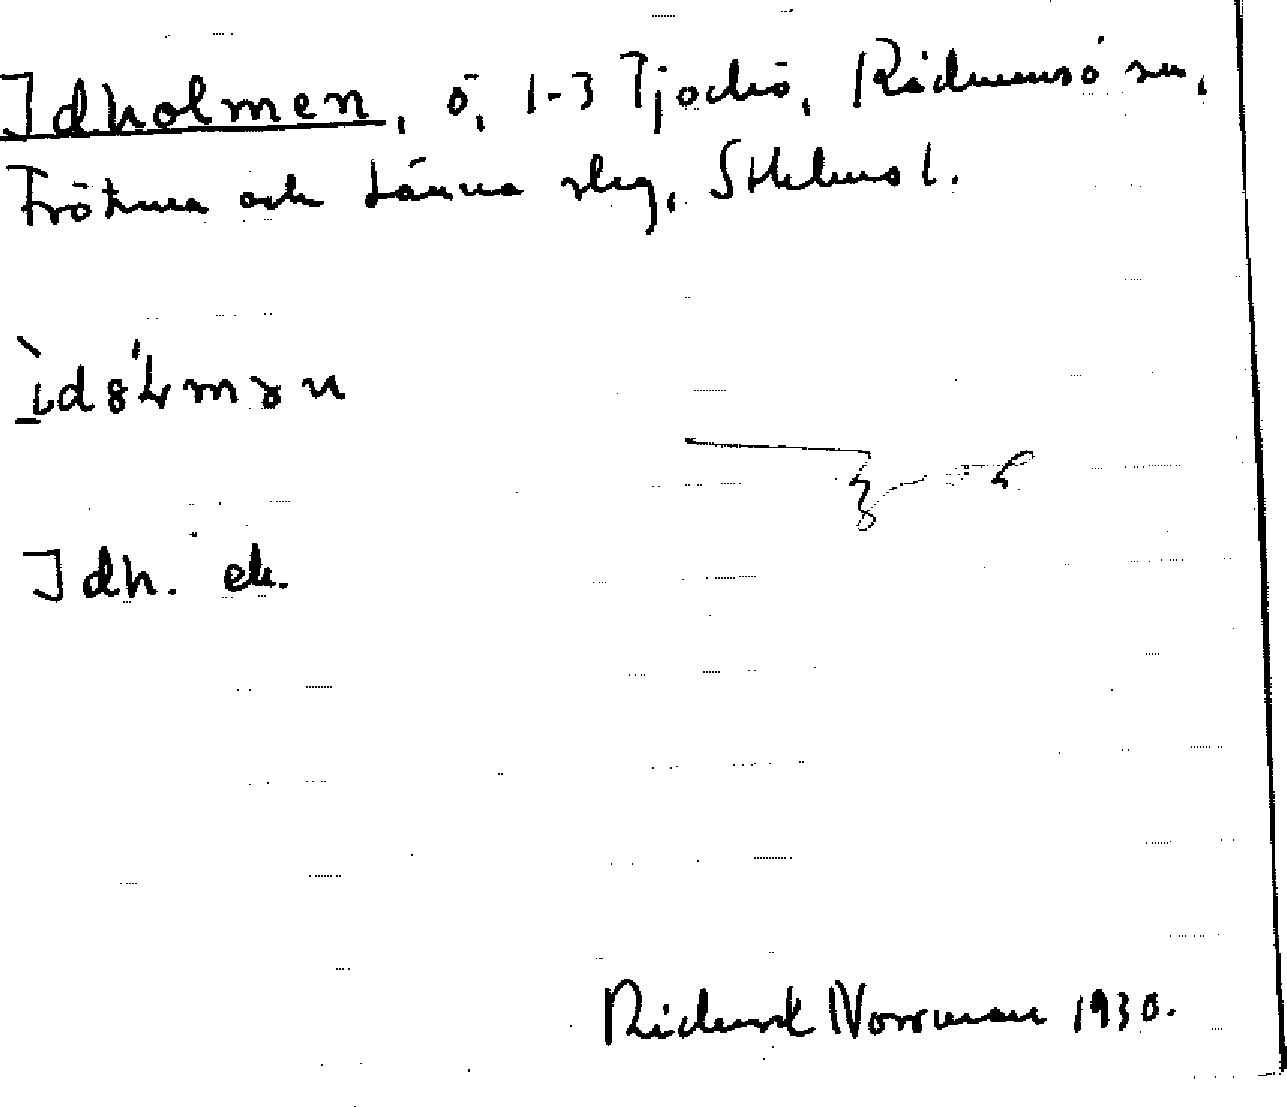 Idholmen, ö, 1-3 Tjockö, Rådmansö sn,
Frötuna och Länna slg, Sthlms l.
Idh. ek.
Rickard Norrman 1930.